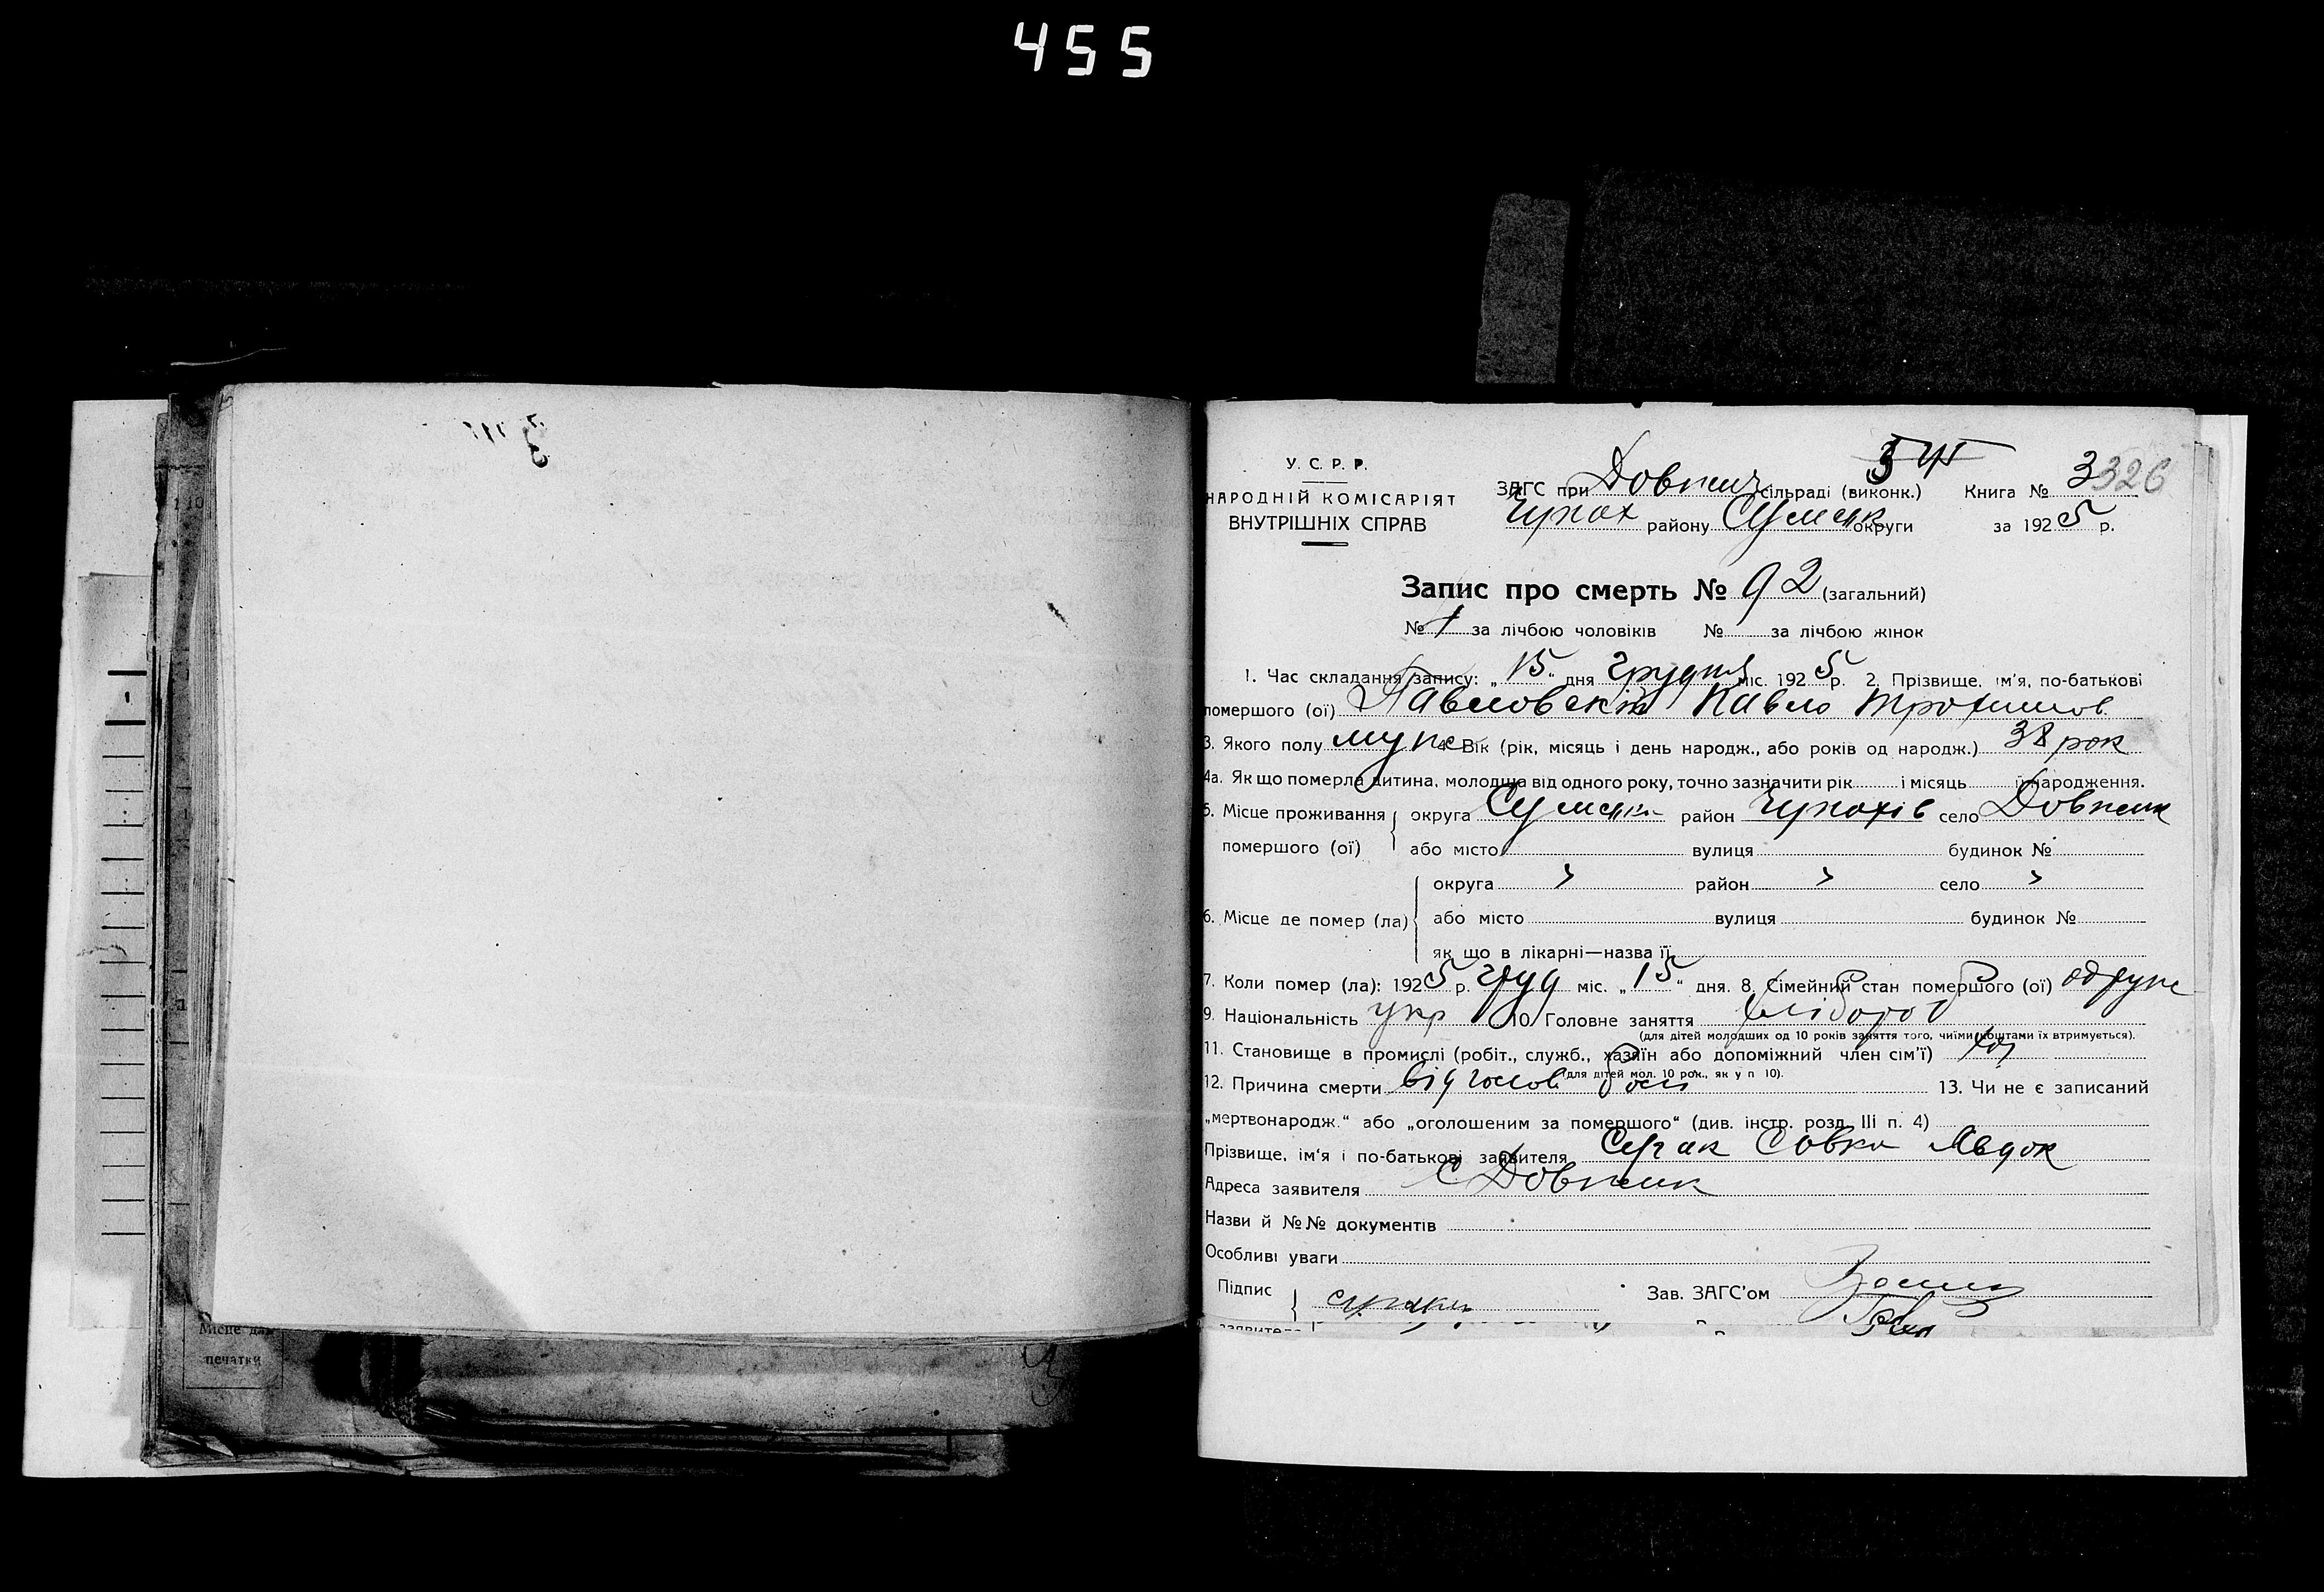 455
У. С. Р. Р.
НАРОДНІЙ КОМІСАРІЯТ
ВНУТРІШНІХ СПРАВ
ЗАГС при Довжич сільраді (виконк.) Книга № 3 326
району Сумськ округи за 1925 р.
Запис про смерть № 92 (загальний)
№ 1 за лічбою чоловіків № за лічбою жінок
1. Час складання запису: „15“ дня грудня міс. 1925 р. 2. Прізвище, ім'я, по-батькові
помершого (ої) Павловський Павло Трохимов
3. Якого полу муж 4. Вік (рік, місяць і день народж., або років од народж.) 38 рок
4а. Як що померла дитина, молодша від одного року, точно зазначити рік і місяць її народження.
5. Місце проживання округа район село Довжик
помершого (ої) або місто вулиця будинок №
округа „ район „ село „
6. Місце де помер (ла) або місто вулиця будинок №
як що в лікарні—назва її
7. Коли помер (ла): 1925 р. груд міс. „15“ дня. 8. Сімейний стан помершого (ої) одруж
9. Національність укр 10. Головне заняття хлібороб
(для дітей молодших од 10 років заняття того, чиїми коштами їх втримується).
11. Становище в промислі (робіт., служб., хазяїн або допоміжний член сім'ї) хоз
(для дітей мол. 10 рок., як у п 10).
12. Причина смерти від голов болі 13. Чи не є записаний
„мертвонародж.“ або „оголошеним за помершого“ (див. інстр. розд. III п. 4)
Прізвище, ім'я і по-батькові заявителя Савка Явдок
Адреса заявителя С Довжик
Назви й №№ документів
Особливі уваги
Підпис
Зав. ЗАГС'ом
заявителя
Місце для
печатки